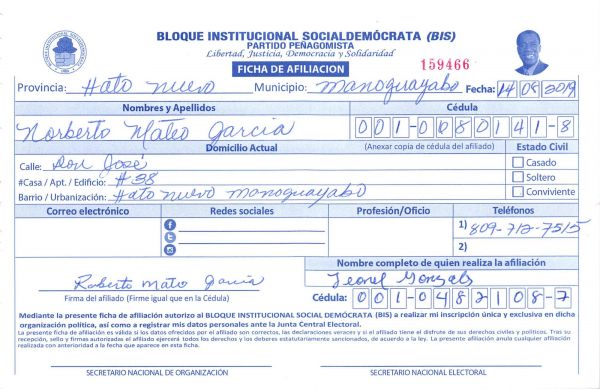 BLOQUE INSTITUCIONAL SOCIALDEMÓCRATA (BIS)
PARTIDO PEÑAGOMISTA
Libertad, Justicia, Democracia y Solidaridad
FICHA DE AFILIACION
159466
Provincia: Hato nuevo Municipio: Manoguayabo Fecha: 14 08 2019
Nombres y Apellidos Cédula
Norberto Mateo Garcia 001-0080141-8
Domicilio Actual (Anexar copia de cédula del afiliado) Estado Civil
Calle: Don José Casado
#Casa / Apt. / Edificio: #38 Soltero
Barrio / Urbanización: Hato nuevo manoguayabo Conviviente
Correo electrónico Redes sociales Profesión/Oficio Teléfonos
1) 809-712-7515
2)
Nombre completo de quien realiza la afiliación
Roberto Mato Garcia Leonel
Firma del afiliado (Firme igual que en la Cédula) Cédula: 001-0482108-7
Mediante la presente ficha de afiliación autorizo al BLOQUE INSTITUCIONAL SOCIAL DEMÓCRATA (BIS) a realizar mi inscripción única y exclusiva en dicha
organización política, así como a registrar mis datos personales ante la Junta Central Electoral.
La presente ficha de afiliación es válida si los datos ofrecidos por el afiliado son correctos, las declaraciones veraces y si el afiliado tiene el disfrute de sus derechos civiles y políticos. Tras su
recepción, sello y firmas autorizadas el afiliado ejercerá todos los derechos y los deberes estatutariamente sancionados, de acuerdo a la ley. La presente afiliación anula cualquier afiliación
realizada con anterioridad a la fecha que aparece en esta ficha.
SECRETARIO NACIONAL DE ORGANIZACIÓN SECRETARIO NACIONAL ELECTORAL